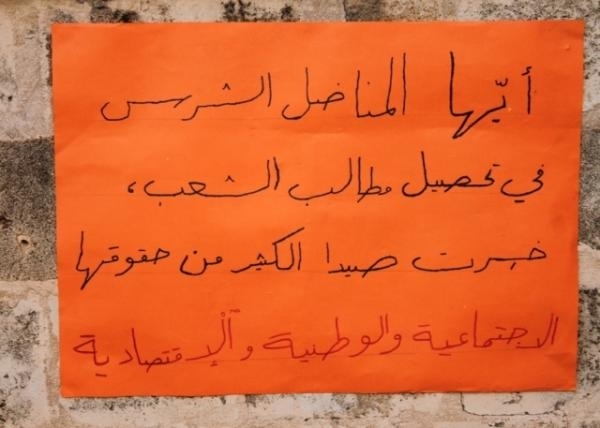 أيّها المناضل الشرس
في تحصيل مطالب الشعب،
خسرت صيدا الكثير من حقوقها
الاجتماعية والوطنية والإقتصادية